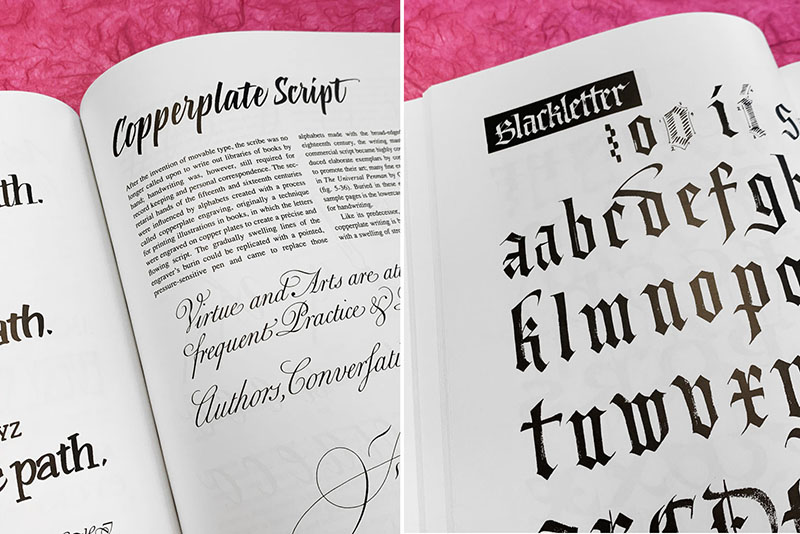 th.
ath.
YZ
e path.
Copperplate Script
After the invention of movable type, the scribe was no
longer called upon to write out libraries of books by
hand; handwriting was, however, still required for
record keeping and personal correspondence. The sec-
retarial hands of the fifteenth and sixteenth centuries
were influenced by alphabets created with a process
called copperplate engraving, originally a technique
for printing illustrations in books, in which the letters
were engraved on copper plates to create a précise and
flowing script. The gradually swelling lines of the
engraver's burin could be replicated with a pointed,
pressure-sensitive pen and came to replace those
alphabets made with the broad-edge
eighteenth century, the writing mas
commercial script became highly co
duced elaborate exemplars by co
to promote their art; many fine
in The Universal Penman by G
(fig. 5-36). Buried in these
sample pages is the lowerca
for handwriting.
Like its predecessor,
copperplate writing is b
with a swelling of str
Virtue and Arts are at
frequent Practice &
Authors, Conversati
Blackletter
o o i i s
aabcdefgh
klmnopq
tuvwxy